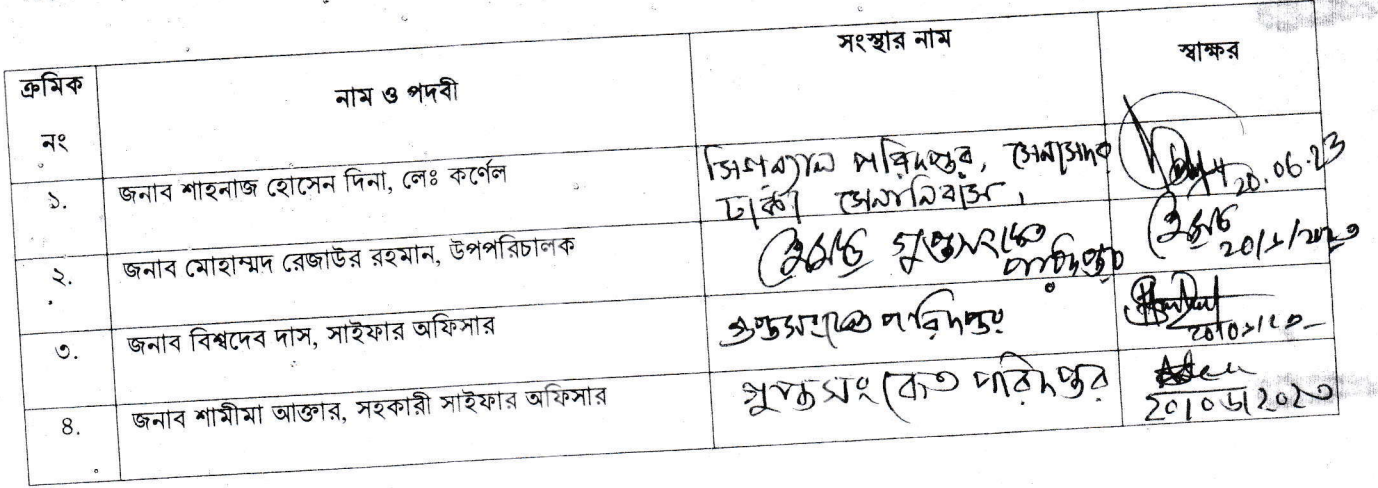 ক্রমিক নং নাম ও পদবী সংস্থার নাম স্বাক্ষর
১. জনাব শাহনাজ হোসেন দিনা, লেঃ কর্ণেল সিগন্যাল পরিদপ্তর, সেনাসদর
ঢাকা সেনানিবাস। 20.06.23
২. জনাব মোহাম্মদ রেজাউর রহমান, উপপরিচালক গুপ্তসংকেত পরিদপ্তর
৩. জনাব বিশ্বদেব দাস, সাইফার অফিসার গুপ্তসংকেত পরিদপ্তর
৪. জনাব শামীমা আক্তার, সহকারী সাইফার অফিসার গুপ্তসংকেত পরিদপ্তর